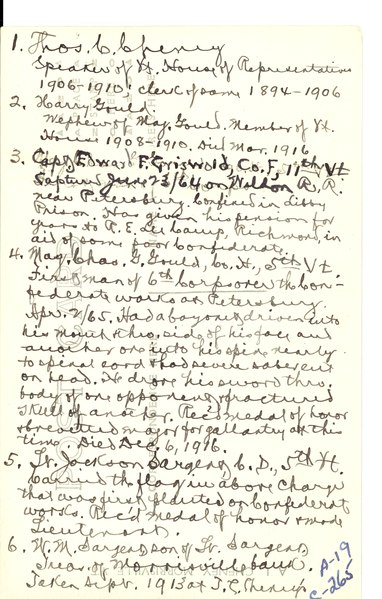 1. Thos. C. Cheney
Speaker of Vt. House of Representatives
1906-1910; clerk of same 1894-1906
2. Harry Gould.
Nephew of Maj. Gould. Member of Vt.
House 1908-1910. Died Mar. 1916
3. Capt. Edward F. Griswold, Co. F, 11th Vt
Captured June 23/64 on Weldon R.R.
near Petersburg. Confined in Libby
Prison. Has given his pension for
years to R. E. Lee Camp, Richmond, in
aid of some poor Confederate.
4. Maj. Chas. G. Gould, Co. H., 5th Vt
First man of 6th Corps over the Con-
federate works at Petersburg.
Apr. 2/65. Had a bayonet driven into
his mouth & thro. side of his face and
another one into his spine nearly
to spinal cord & had severe saber cut
on head. He drove his sword thro.
body of one opponent & fractured
skull of another. Rec'd medal of honor
& brevetted major for gallantry at this
time. Died Dec. 6, 1916.
5. Lt. Jackson Sargent, Co. D., 5th Vt.
Carried the flag in above charge
that was first planted on Confederate
works. Rec'd medal of honor & made
Lieutenant.
6. W. M. Sargent, son of Lt. Sargent,
Treas. of Morrisville band.
Taken Sept. 1913 at T. C. Cheney's
A-19
C-265